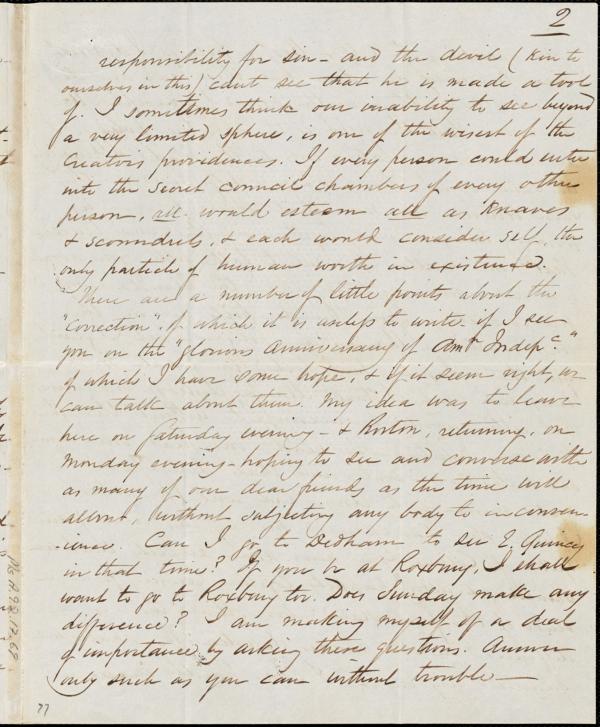 2
responsibility for sin - and the devil (kin to
ourselves in this) cant see that he is made a tool
of. I sometimes think our inability to see beyond
a very limited sphere, is one of the wisest of the
Creators providences. If every person could enter
into the secret council chambers of every other
person, all would esteem all as knaves
& scoundrels, & each would consider self, the
only particle of human worth in existence.
There are a number of little points about the
"Correction". of which it is useless to write if I see
you on the "glorious anniversary of Amn Indepc."
of which I have some hope, & if it seem right, we
can talk about them. My idea was to leave
here on Saturday evening - & Boston, returning, on
Monday evening - hoping to see and converse with
as many of our dear friends as the time will
allow, without subjecting any body to inconven-
-ience. Can I go to Dedham to see E. Quincy
in that time? If you be at Roxbury, I shall
want to go to Roxbury too. Does Sunday make any
difference? I am making myself of a deal
of importance by asking these questions. Answer
only such as you can without trouble -
77